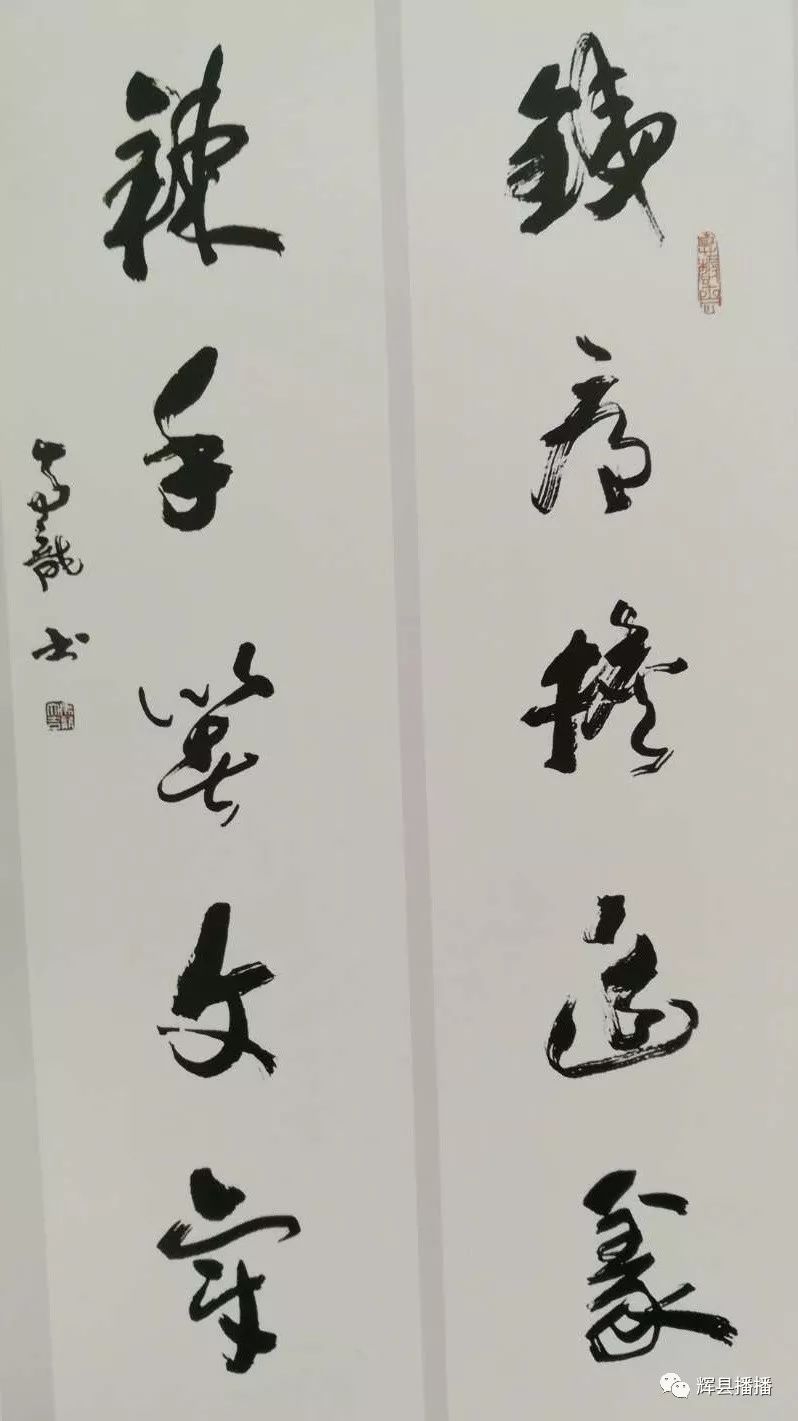 鐵肩擔道義
辣手著文章
书
辉县播播